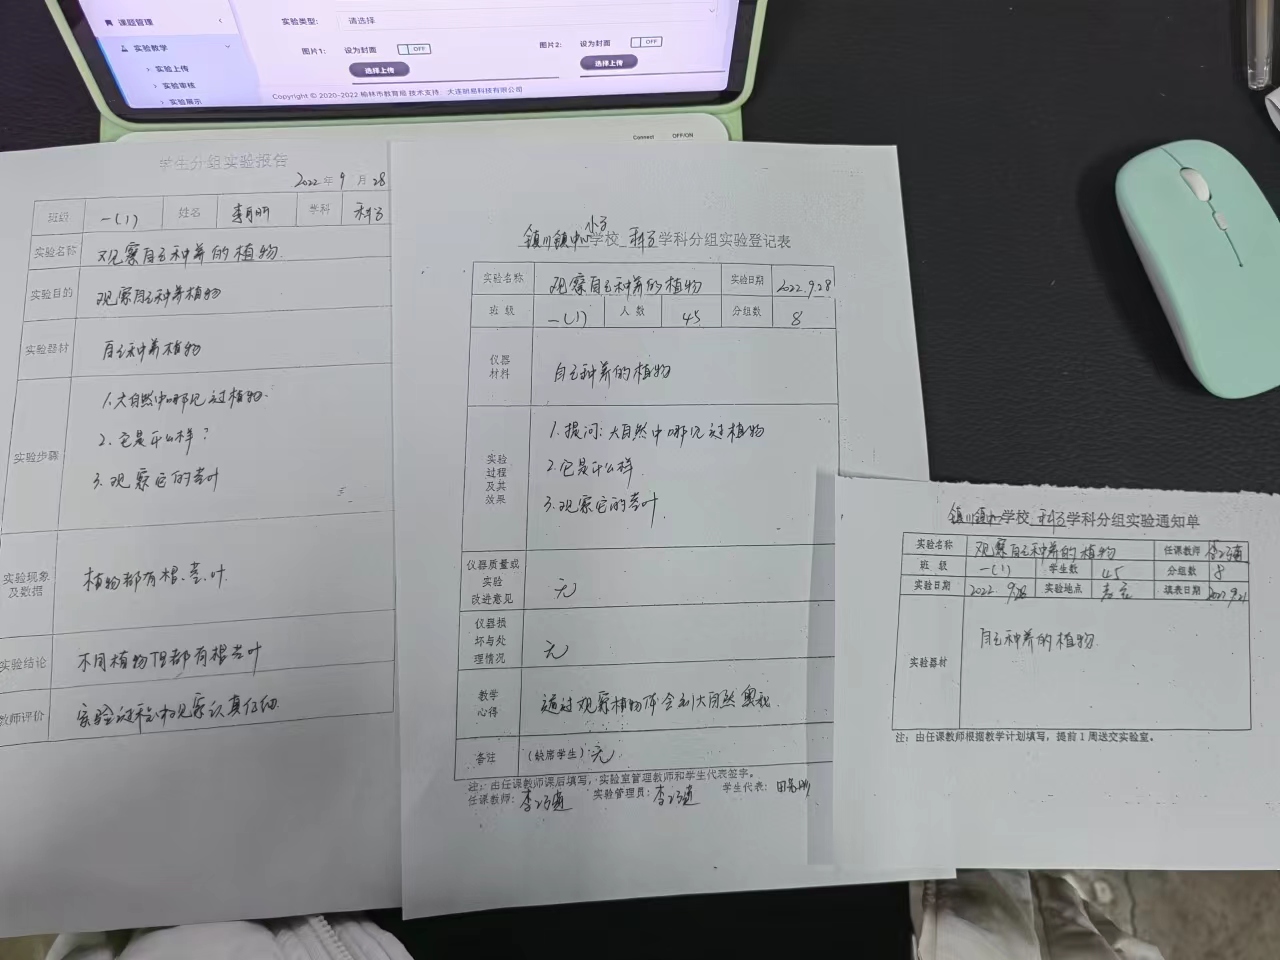 课题管理
实验教学
实验上传
实验审核
实验展示
实验类型: 请选择
图片1: 设为封面 OFF
图片2: 设为封面 OFF
选择上传
选择上传
Copyright © 2020-2022 榆林市教育局 技术支持: 大连明易科技有限公司
Connect OFF/ON
学生分组实验报告
2022年9月28
班级 一(1) 姓名 学科 科学
实验名称 观察自己种养的植物.
实验目的 观察自己种养植物
实验器材 自己种养植物
实验步骤
1.大自然中哪见过植物.
2.它是什么样?
3.观察它的茎叶
实验现象及数据 植物都有根.茎.叶.
实验结论 不同植物但都有根茎叶
教师评价 实验过程中观察认真仔细.
镇川镇中心小学学校 科学学科分组实验登记表
实验名称 观察自己种养的植物 实验日期 2022.9.28
班级 一(1) 人数 45 分组数 8
仪器材料 自己种养的植物
实验过程及其效果
1.提问:大自然中哪见过植物
2.它是什么样.
3.观察它的茎叶.
仪器质量或实验改进意见 无
仪器损坏与处理情况 无
教学心得 通过观察植物体会到大自然奥秘.
备注 (缺席学生) 无
注: 由任课教师课后填写, 实验室管理教师和学生代表签字。
任课教师: 实验管理员: 学生代表:
镇川镇中心学校 科学学科分组实验通知单
实验名称 观察自己种养的植物 任课教师
班级 一(1) 学生数 45 分组数 8
实验日期 2022 9.28 实验地点 填表日期 2022 9.21
实验器材 自己种养的植物.
注: 由任课教师根据教学计划填写, 提前1周送交实验室。